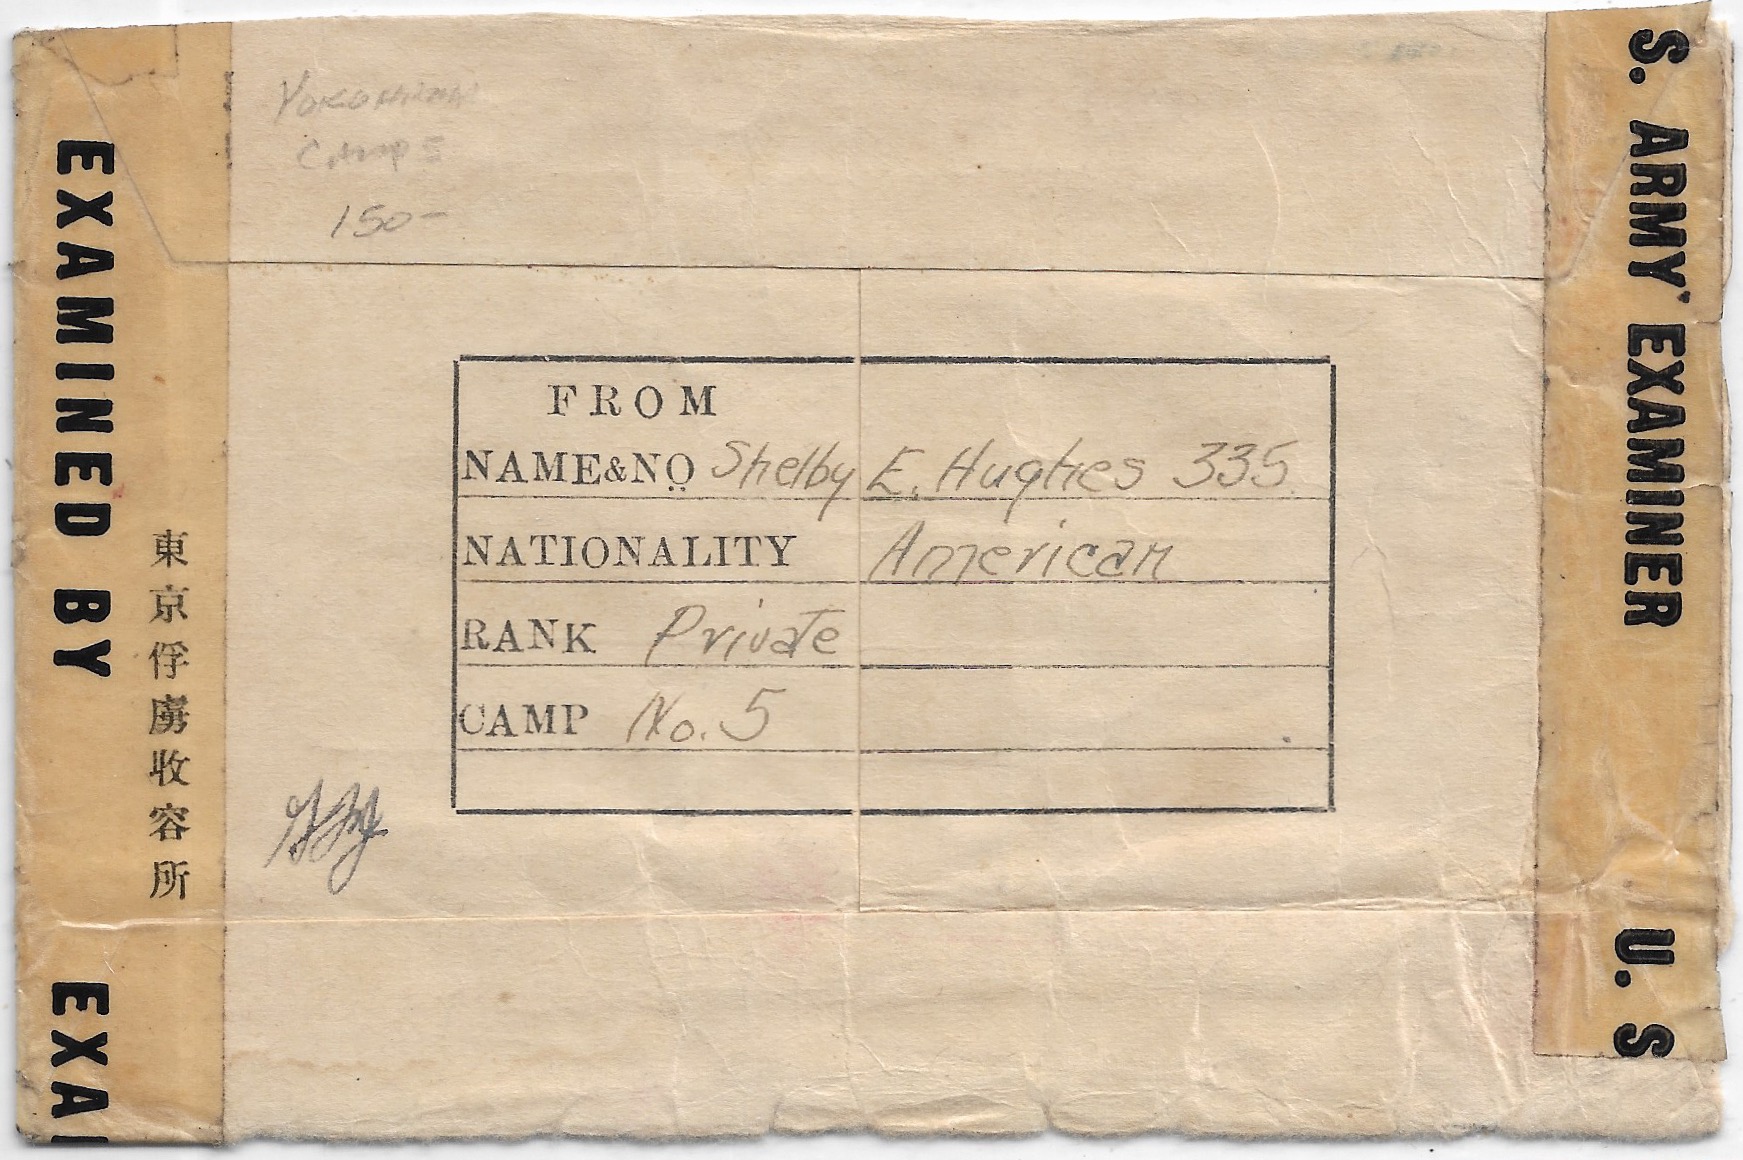 EXAMINED BY
EXA
東京俘虜收容所
CAMP 5
150-
FROM
NAME&NO Shelby E. Hughes 335
NATIONALITY American
RANK Private
CAMP No. 5
S. ARMY EXAMINER
U. S